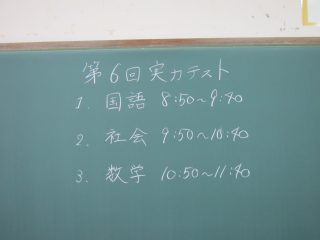 第6回実力テスト
1. 国語 8:50～9:40
2. 社会 9:50～10:40
3. 数学 10:50～11:40